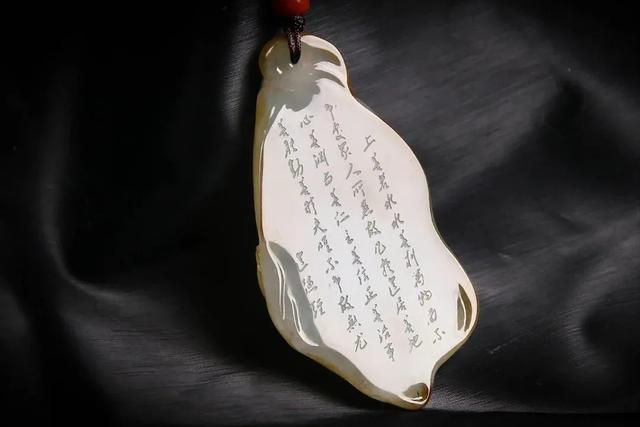 上善若水水善利萬物而不
争處眾人所惡故几於道居善地
心善渊与善仁言善信正善治事
善能動善时夫唯不争故無尤
道德經